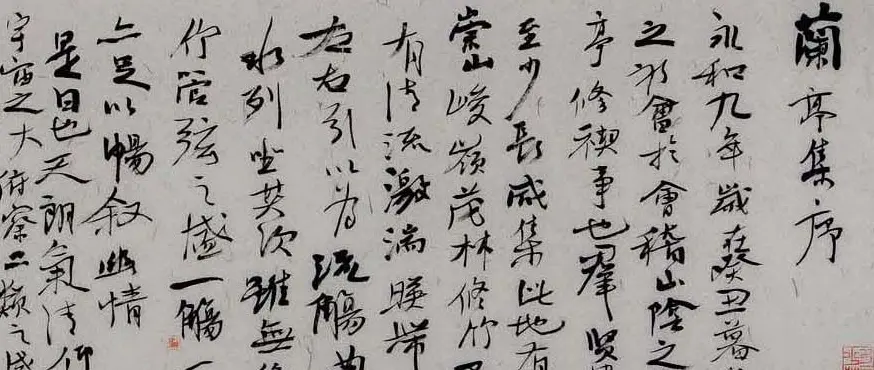 蘭亭集序
永和九年歲在癸丑暮
之初會於會稽山陰之
亭修禊事也羣賢
至少長咸集此地有
崇山峻嶺茂林修竹
有清流激湍暎帶
左右引以為流觴曲
水列坐其次雖無
竹管弦之盛一觴一
亦足以暢叙幽情
是日也天朗氣清仰
宇宙之大俯察品類之盛